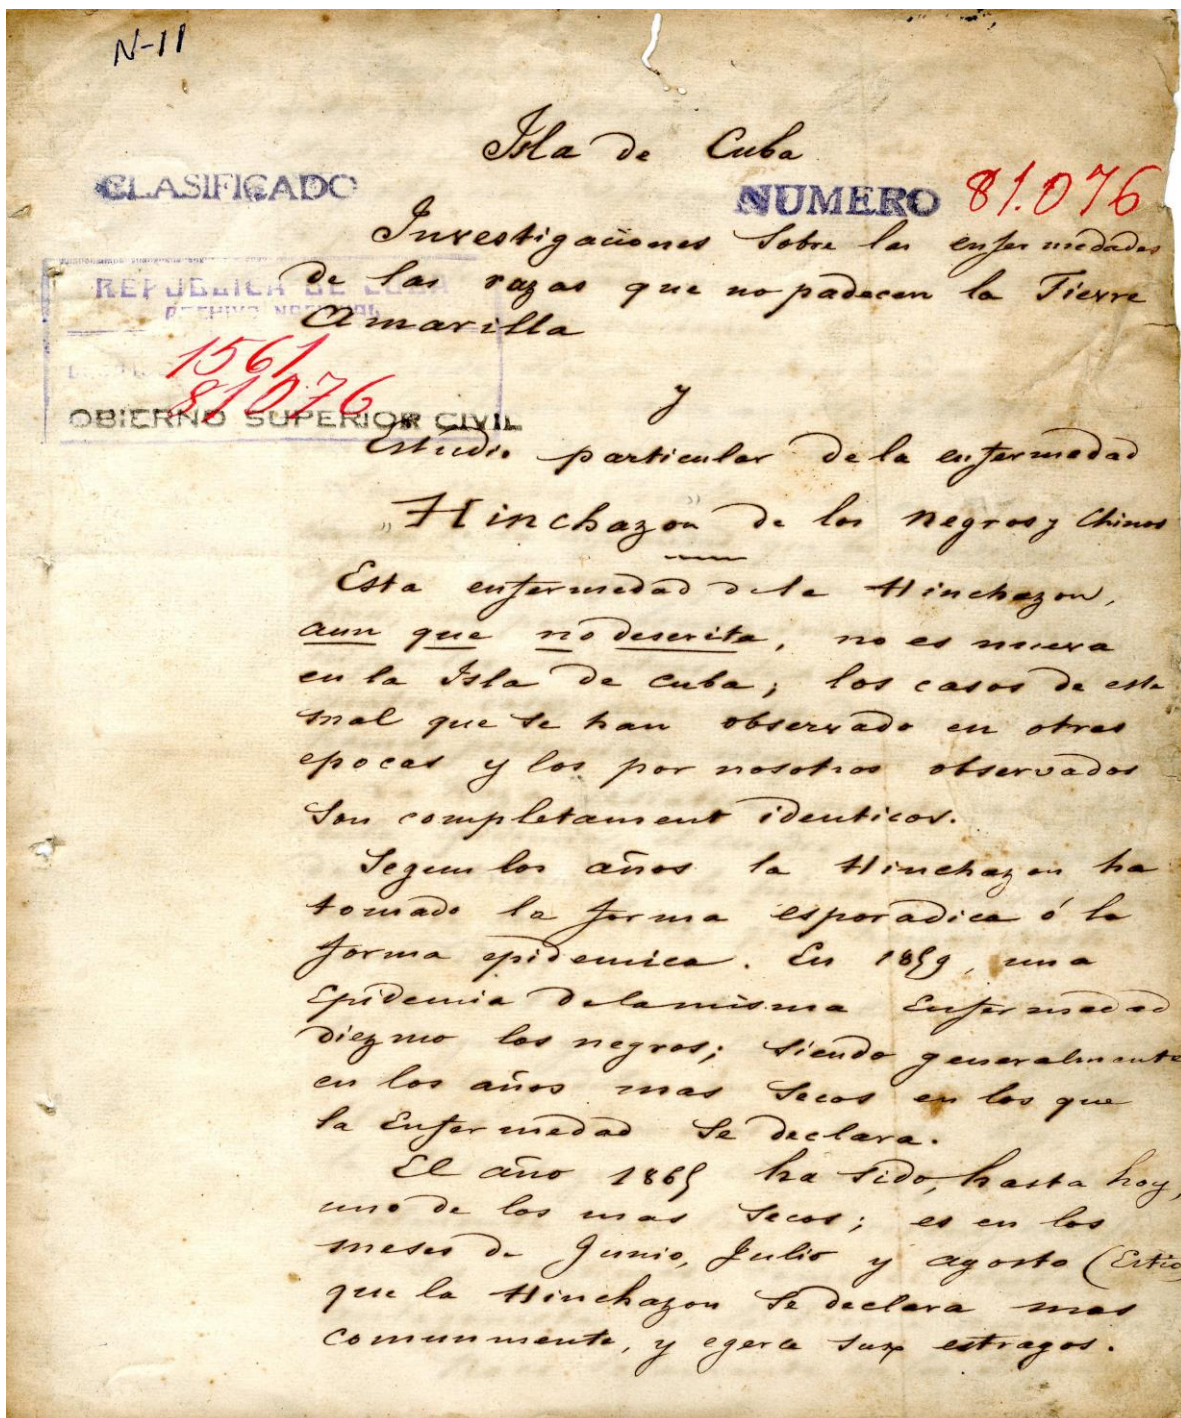 N-11
Isla de Cuba
CLASIFICADO
NUMERO 81.076
Investigaciones sobre las enfermedades
REPUBLICA DE CUBA
de las razas que no padecen la Fievre
ARCHIVO NACIONAL
Amarilla
1561
81076
y
OBIERNO SUPERIOR CIVIL
Estudio particular de la enfermedad
"Hinchazon" de los negros y Chinos
Esta enfermedad de la Hinchazon,
aun que no descrita, no es nueva
en la Isla de Cuba; los casos de este
mal que se han observado en otras
epocas y los por nosotros observados
son completament identicos.
Segun los años la Hinchazon ha
tomado la forma esporadica ó la
forma epidemica. En 1859, una
Epidemia de la misma Enfermedad
diezmo los negros; siendo generalmente
en los años mas secos en los que
la Enfermedad se declara.
El año 1865 ha sido, hasta hoy,
uno de los mas secos; es en los
meses de Junio, Julio y agosto (Estio)
que la Hinchazon se declara mas
comunmente, y egerce sus estragos.